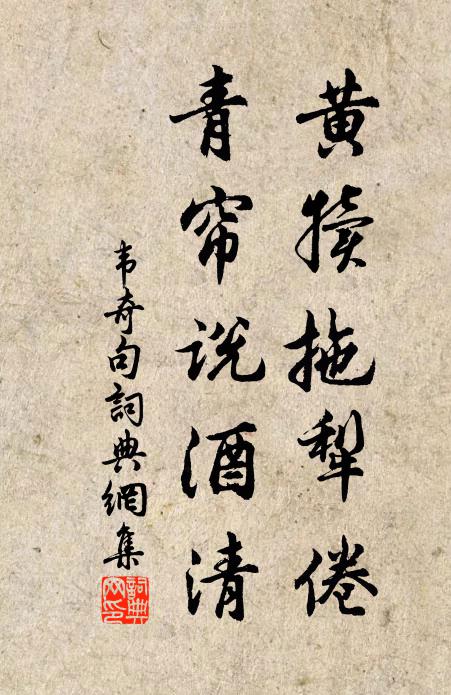 黄犢拖犂倦
青帘说酒清
韦奇句詞典網集
詞典网印